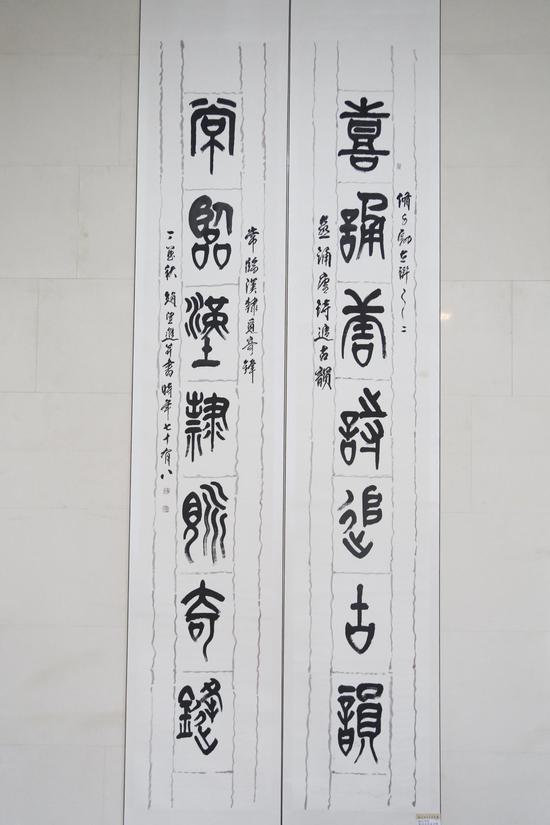 喜誦唐詩追古韻
喜誦唐詩追古韻
常臨漢隸覓奇鋒
常臨漢隸覓奇鋒
秋 并書時年七十有八